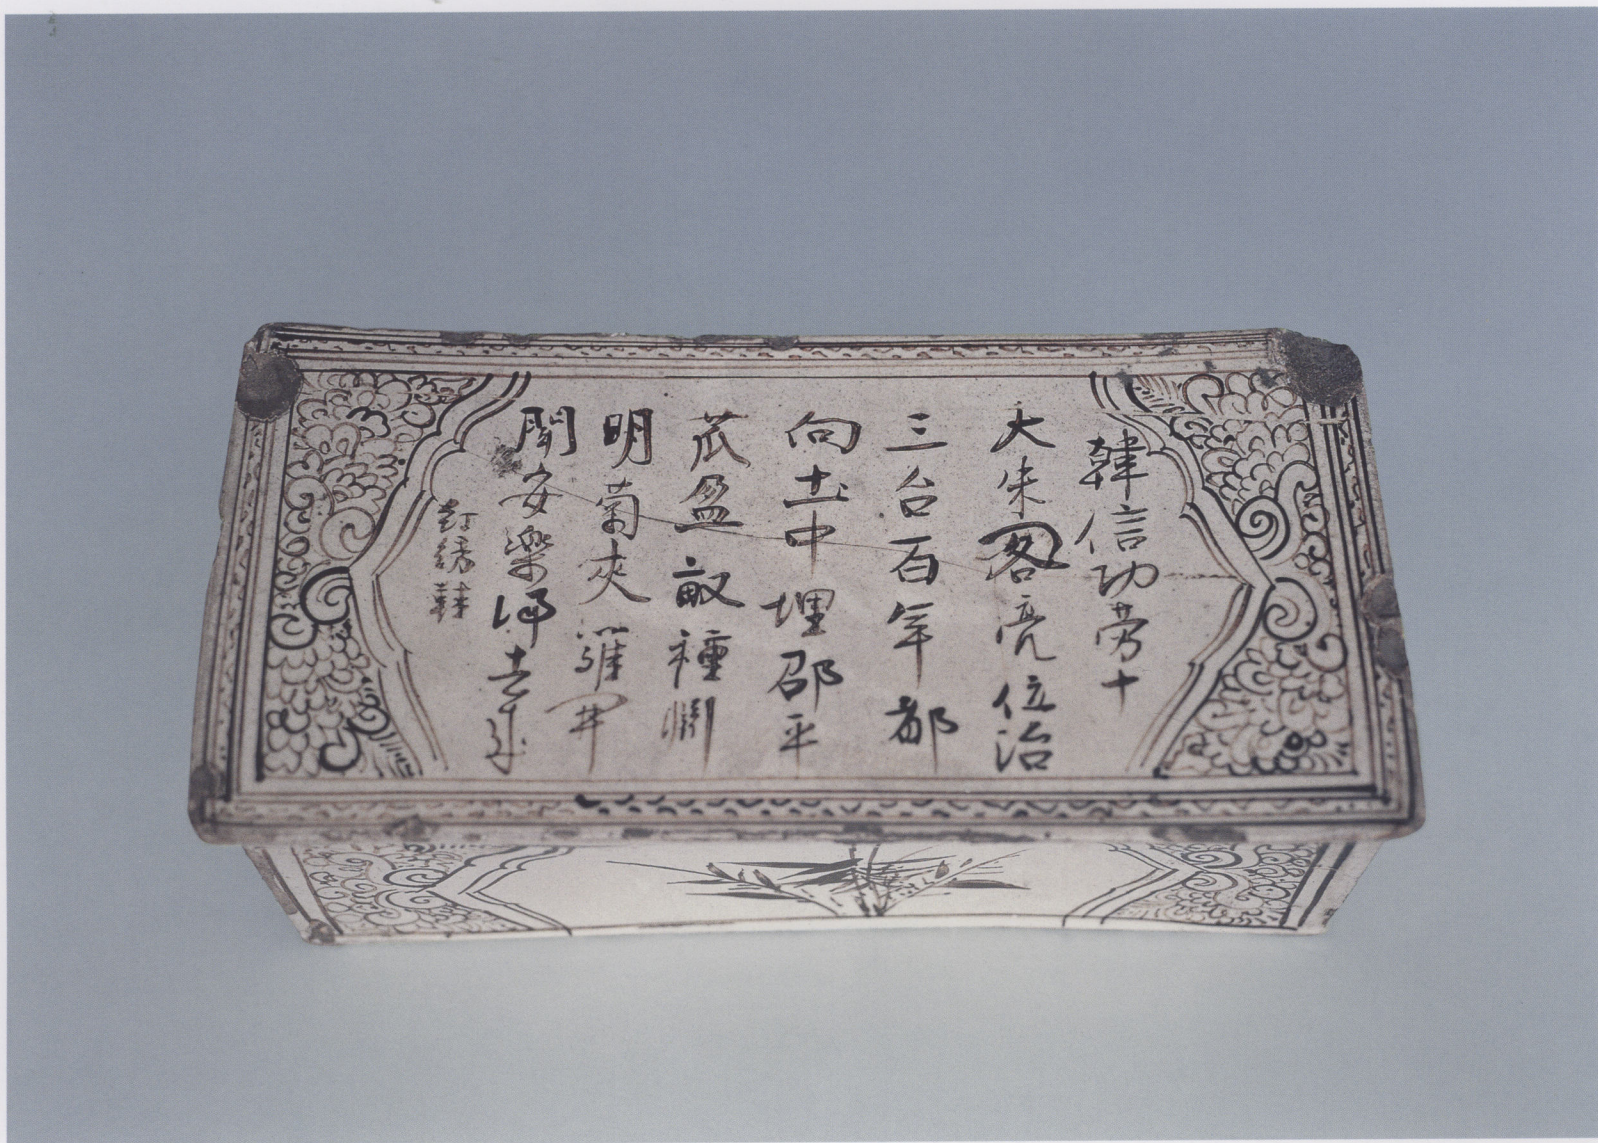 韓信功劳十
大朱阁亮位治
三台百年都
向土中埋邵平
瓜盈畝種渊
明菊夾籬开
聞安樂歸去来
綉鞋